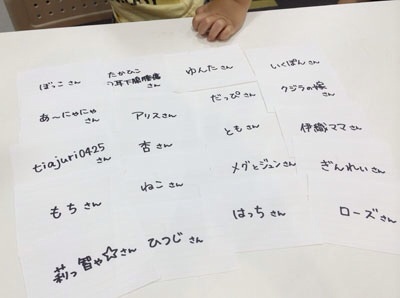 ぼっこさん
たかひこ
の耳下腺腫瘍さん
ゆんたさん
いくぽんさん
あ〜にゃにゃ
さん
アリスさん
だっぴさん
クジラの嫁
さん
tiajuri0425
さん
杏さん
ともさん
伊織ママさん
もちさん
ねこさん
メグとジュンさん
ぎんれいさん
莉っ智ゃ☆さん
ひつじ
さん
はっちさん
ローズさん